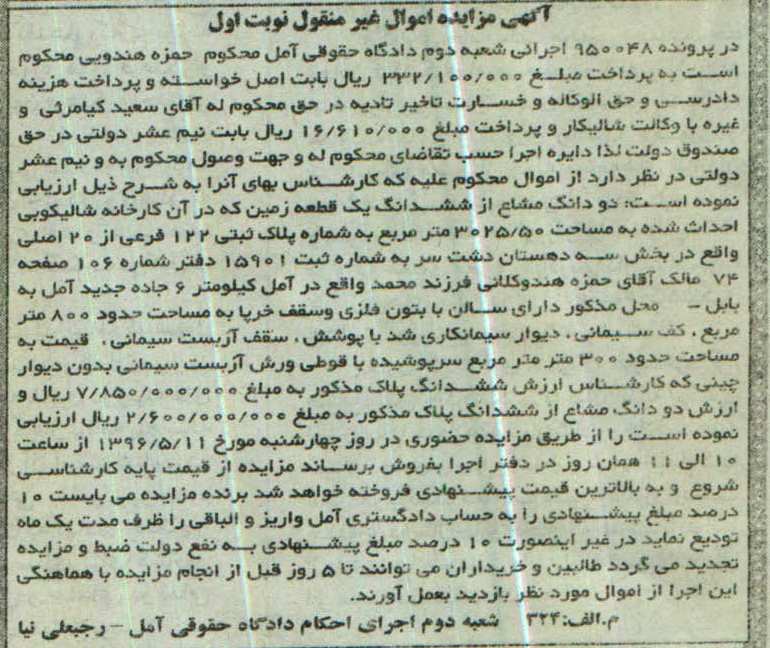 آگهی مزایده اموال غیر منقول نوبت اول
در پرونده ۹۵۰۰۴۸ اجرائی شعبه دوم دادگاه حقوقی آمل محکوم حمزه هندویی محکوم
است به پرداخت مبلغ ۳۳۲/۱۰۰/۰۰۰ ریال بابت اصل خواسته و پرداخت هزینه
دادرسی و حق الوکاله و خسارت تاخیر تادیه در حق محکوم له آقای سعید کیامرثی و
غیره با وکالت شالیکار و پرداخت مبلغ ۱۶/۶۱۰/۰۰۰ ریال بابت نیم عشر دولتی در حق
صندوق دولت لذا دایره اجرا حسب تقاضای محکوم له و جهت وصول محکوم به و نیم عشر
دولتی در نظر دارد از اموال محکوم علیه که کارشناس بهای آنرا به شرح ذیل ارزیابی
نموده است: دو دانگ مشاع از ششدانگ یک قطعه زمین که در آن کارخانه شالیکوبی
احداث شده به مساحت ۳۰۲۵/۵۰ متر مربع به شماره پلاک ثبتی ۱۲۲ فرعی از ۲۰ اصلی
واقع در بخش سه دهستان دشت سر به شماره ثبت ۱۵۹۰۱ دفتر شماره ۱۰۶ صفحه
۷۴ مالک آقای حمزه هندوکلائی فرزند محمد واقع در آمل کیلومتر ۶ جاده جدید آمل به
بابل – محل مذکور دارای سالن با بتون فلزی وسقف خرپا به مساحت حدود ۸۰۰ متر
مربع ، کف سیمانی ، دیوار سیمانکاری شد با پوشش ، سقف آزبست سیمانی ، قیمت به
مساحت حدود ۳۰۰ متر متر مربع سرپوشیده با قوطی ورش آزبست سیمانی بدون دیوار
چینی که کارشناس ارزش ششدانگ پلاک مذکور به مبلغ ۷/۸۵۰/۰۰۰/۰۰۰ ریال و
ارزش دو دانگ مشاع از ششدانگ پلاک مذکور به مبلغ ۲/۶۰۰/۰۰۰/۰۰۰ ریال ارزیابی
نموده است را از طریق مزایده حضوری در روز چهارشنبه مورخ ۱۳۹۶/۵/۱۱ از ساعت
۱۰ الی ۱۱ همان روز در دفتر اجرا بفروش برساند مزایده از قیمت پایه کارشناسی
شروع و به بالاترین قیمت پیشنهادی فروخته خواهد شد برنده مزایده می بایست ۱۰
درصد مبلغ پیشنهادی را به حساب دادگستری آمل واریز و الباقی را ظرف مدت یک ماه
تودیع نماید در غیر اینصورت ۱۰ درصد مبلغ پیشنهادی به نفع دولت ضبط و مزایده
تجدید می گردد طالبین و خریداران می توانند تا ۵ روز قبل از انجام مزایده با هماهنگی
این اجرا از اموال مورد نظر بازدید بعمل آورند.
م.الف:۳۲۴ شعبه دوم اجرای احکام دادگاه حقوقی آمل – رجبعلی نیا